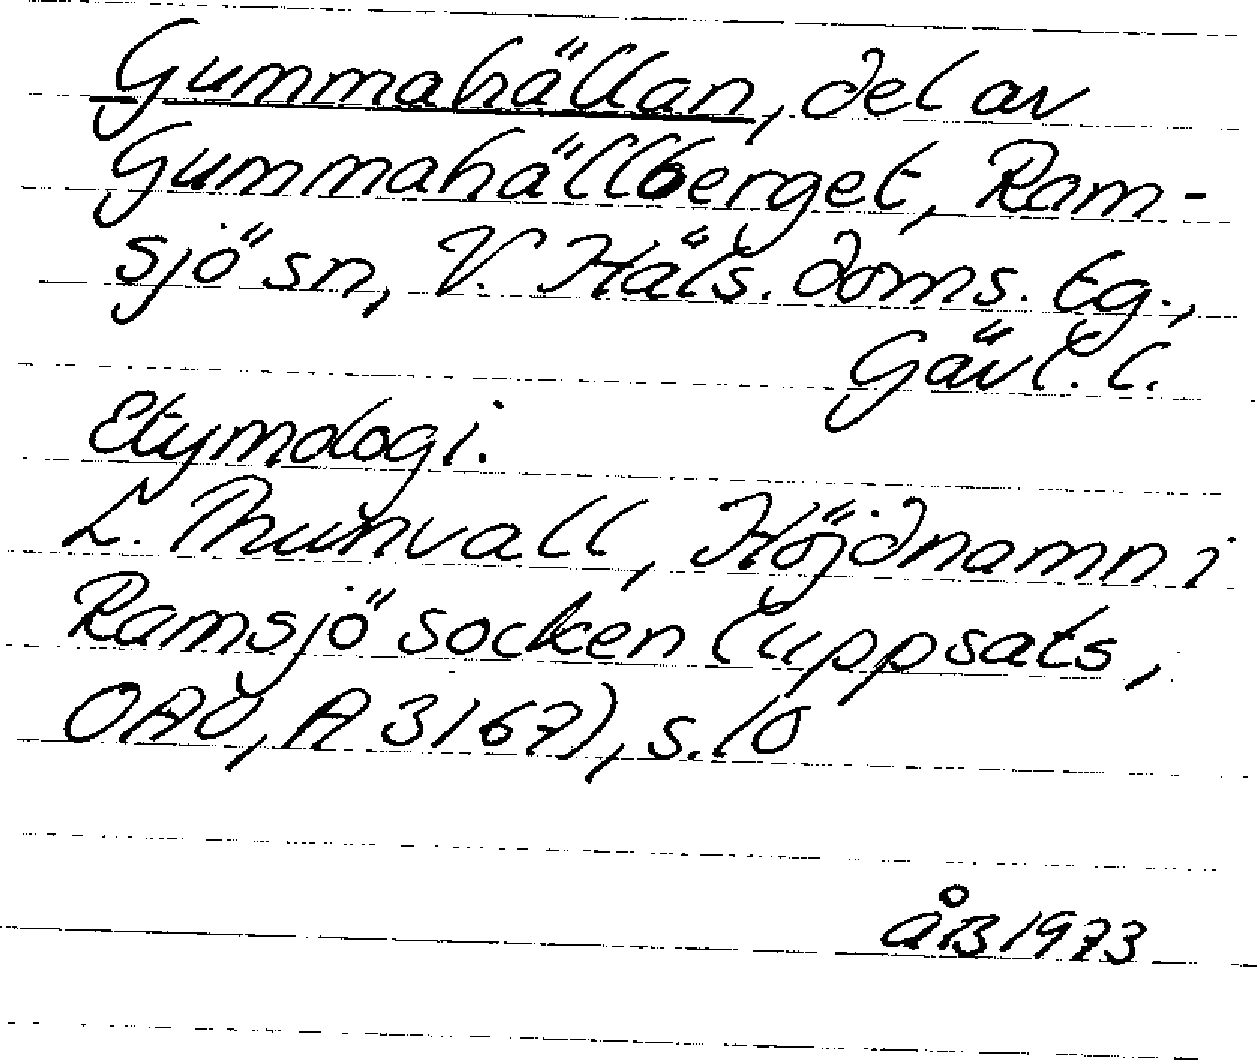 Gummahällan, del av
Gummahällberget, Ram-
sjö sn, V. Häls. doms. tg.,
Gävl. l.
Etymologi.
L. Thunvall, Höjdnamn i
Ramsjö socken (uppsats,
OAU, A 3167), s. 10
åB 1973